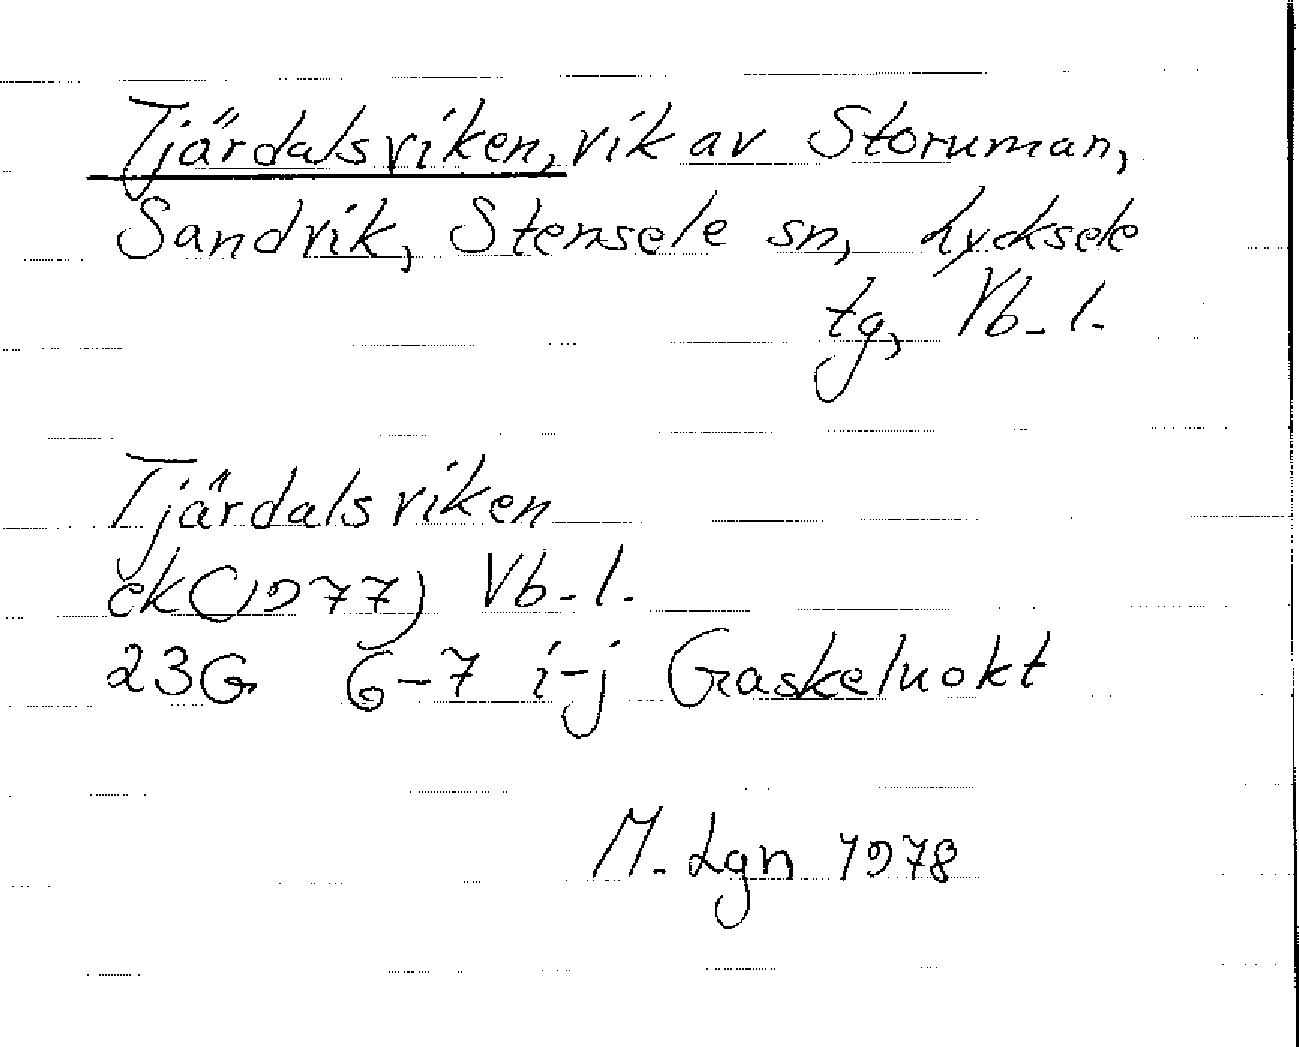 Tjärdalsviken, vik av Storuman,
Sandvik, Stensele sn, Lycksele
tg, Vb. l.
Tjärdalsviken
ek (1977) Vb. l.
23G 6-7 i-j Gaskeluokt
M. Lgn 1978